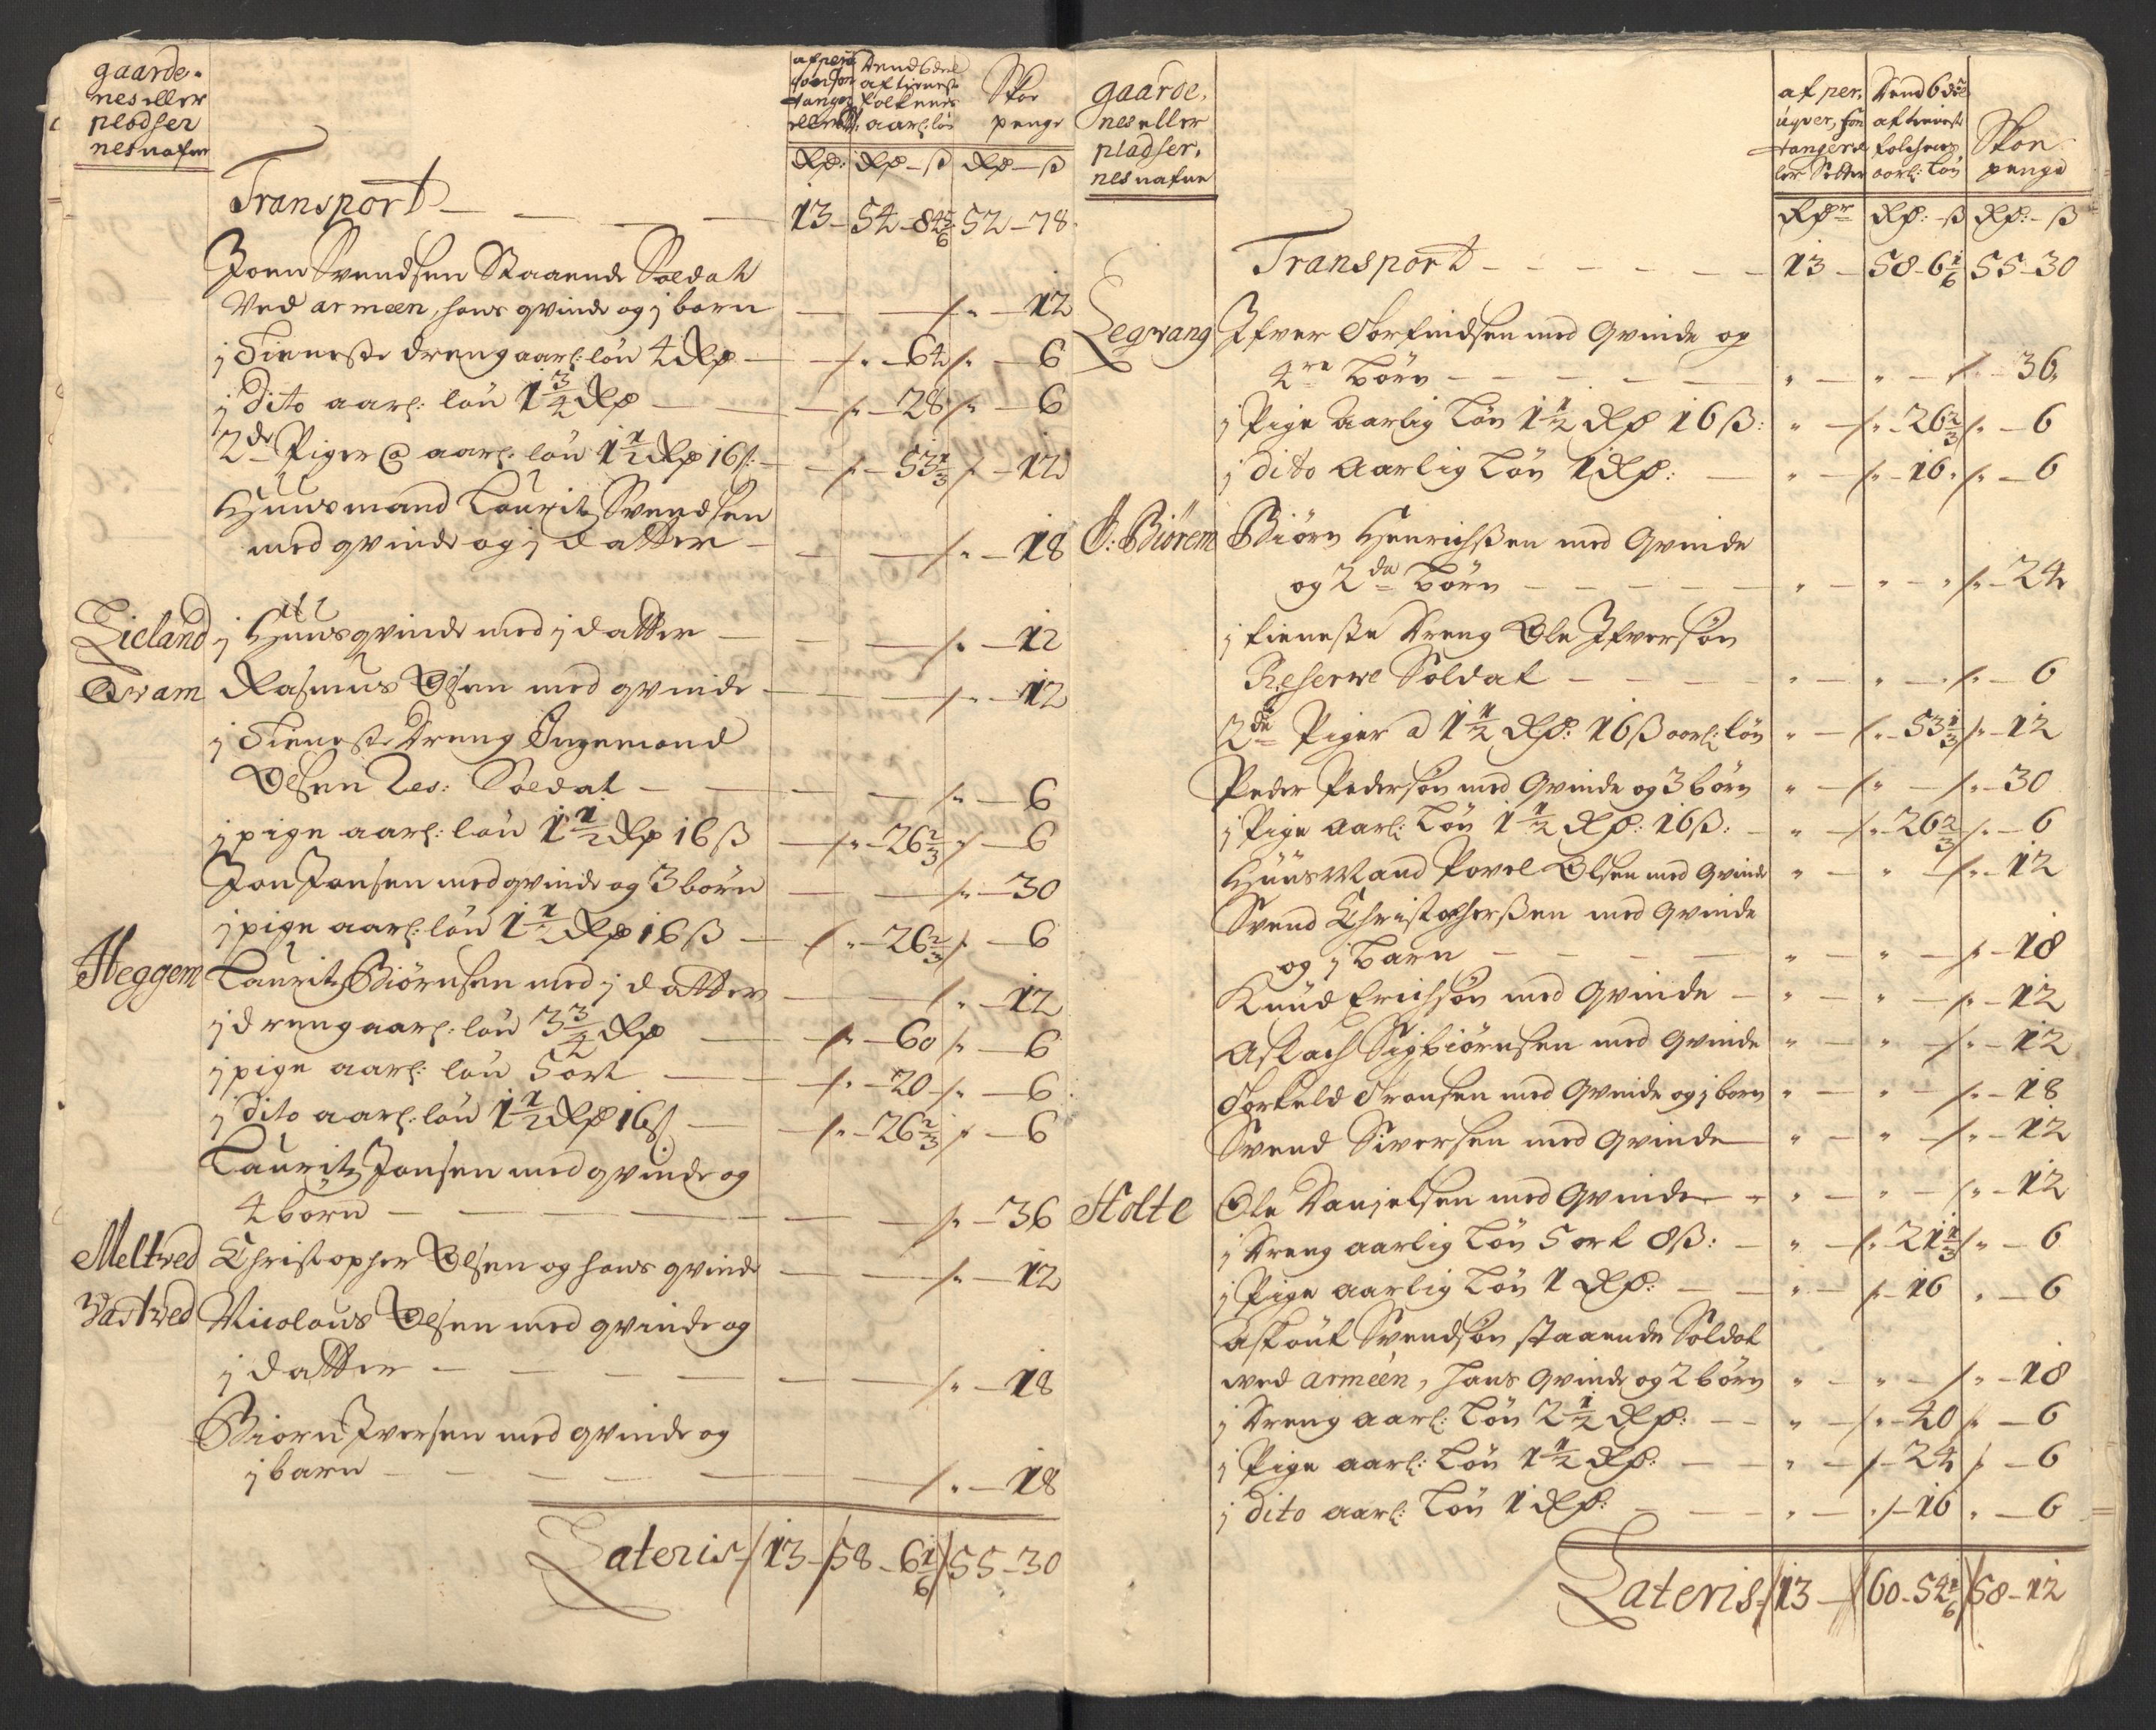 gaarde-
nes eller
pladser
nes nafne
Skoe
penge
aarl: løn
Rdr: Rd – ß Rd – ß
Transport – 13 – 54 – 84 5/6 52 – 78
Joen Svendsen Staaende Soldat
Ved armeen, hans qvinde og j barn – 12
j Tieneste dreng aarl: løn 4 Rd – 64 – 6
j dito aarl: løn 1 3/4 Rd – 28 – 6
2de Piger @ aarl: løn 1 1/2 Rd 16 ß – 53 1/3 – 12
Huusmand Lourit Svendsen
med qvinde og j datter – 18
Lieland j Huusqvinde med j datter – 12
Qvam Rasmus Olsen med qvinde – 12
j Tieneste Dreng Ingemond
Olsen Res: Soldat – 6
j pige aarl: løn 1 1/2 Rd 16 ß – 26 2/3 – 6
Jon Jonsen med qvinde og 3 børn – 30
j pige aarl: løn 1 1/2 Rd 16 ß – 26 2/3 – 6
Heggem Lauritz Biørnsen med j datter – 12
j dreng aarl: løn 3 3/4 Rd – 60 – 6
j pige aarl: løn 5 ort – 20 – 6
j dito aarl: løn 1 1/2 Rd 16 ß – 26 2/3 – 6
Lauritz Jonsen med qvinde og
4 børn – 36
Meltved Christopher Olsen og hans qvinde – 12
Vastved Nicolaus Olsen med qvinde og
j datter – 18
Biørn Iversen med qvinde og
j barn – 18
Lateris 13 – 58 – 6 1/6 55 – 30
gaarde,
nes eller
pladser,
nes nafne
af per,
uqver, son
tanger el
ler Solder
Vend 6 dee
af tieneste
folchenes
aarl: løn
Skoe
penge
Rdr Rd: – ß Rd: – ß
Transport – 13 – 58 – 6 1/6 55 – 30
Legvang Ifver Torfindsen med Qvinde og
4re børn – 36
j Pige Aarlig Løn 1 1/2 Rd 16 ß: – 26 2/3 – 6
j dito Aarlig Løn 1 Rd: – 16 – 6
Ø: Biörem Biørn Henrichßen med Qvinde
og 2de børn – 24
j tieneste Dreng Ole Ifversøn
Reserve Soldat – 6
2de Piger a 1 1/2 Rd: 16 ß aarl: løn – 53 1/3 – 12
Peder Pedersøn med Qvinde og 3 børn – 30
j Pige Aarl: Løn 1 1/2 Rd: 16 ß: – 26 2/3 – 6
Huus Mand Povel Olsen med Qvinde – 12
Svend Christopherßen med Qvinde
og j barn – 18
Knud Erichsøn med Qvinde – 12
Aslach Sigbiørnsen med Qvinde – 12
Torkeld Tronsen med Qvinde og j barn – 18
Svend Siversen med Qvinde – 12
Holte Ole Danjelsen med Qvinde – 12
j Dreng aarlig Løn 5 ort 8 ß: – 21 1/3 – 6
j Pige aarlig Løn 1 Rd: – 16 – 6
Aslout Svendsøn staaende Soldat
wed armeen, hans Qvinde og 2 børn – 18
j Dreng aarl: Løn 2 1/2 Rd: – 40 – 6
j Pige aarl: Løn 1 1/2 Rd: – 24 – 6
j dito aarl: Løn 1 Rd: – 16 – 6
Lateris 13 – 60 – 54 1/6 58 – 12